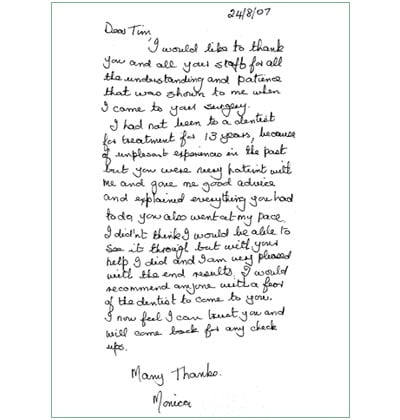 24/8/07
Dear Tim,
I would like to thank
you and all your staff for all
the understanding and patience
that was shown to me when
I came to your surgery.
I had not been to a dentist
for treatment for 13 years, because
of unplesant experiences in the past
but you were very patient with
me and gave me good advice
and explained everything you had
to do, you also went at my pace.
I didn't think I would be able to
see it through but with your
help I did and I am very pleased
with the end results. I would
recommend anyone with a fear
of the dentist to come to you.
I now feel I can trust you and
will come back for any check
ups.
Many Thanks.
Monica